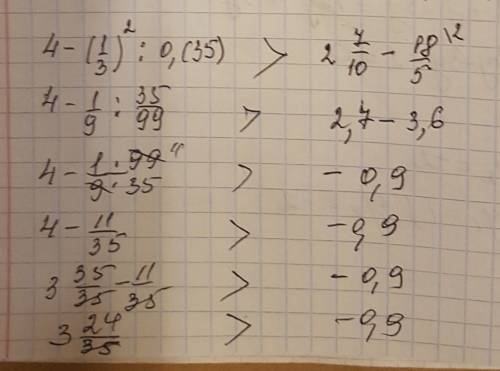 4 - (1/3)² : 0,(35) > 2 7/10 - 18/5 \2
4 - 1/9 : 35/99 > 2,7 - 3,6
4 - 1 · 99 11 / 9 · 35 > - 0,9
4 - 11/35 > - 0,9
3 35/35 - 11/35 > - 0,9
3 24/35 > - 0,9